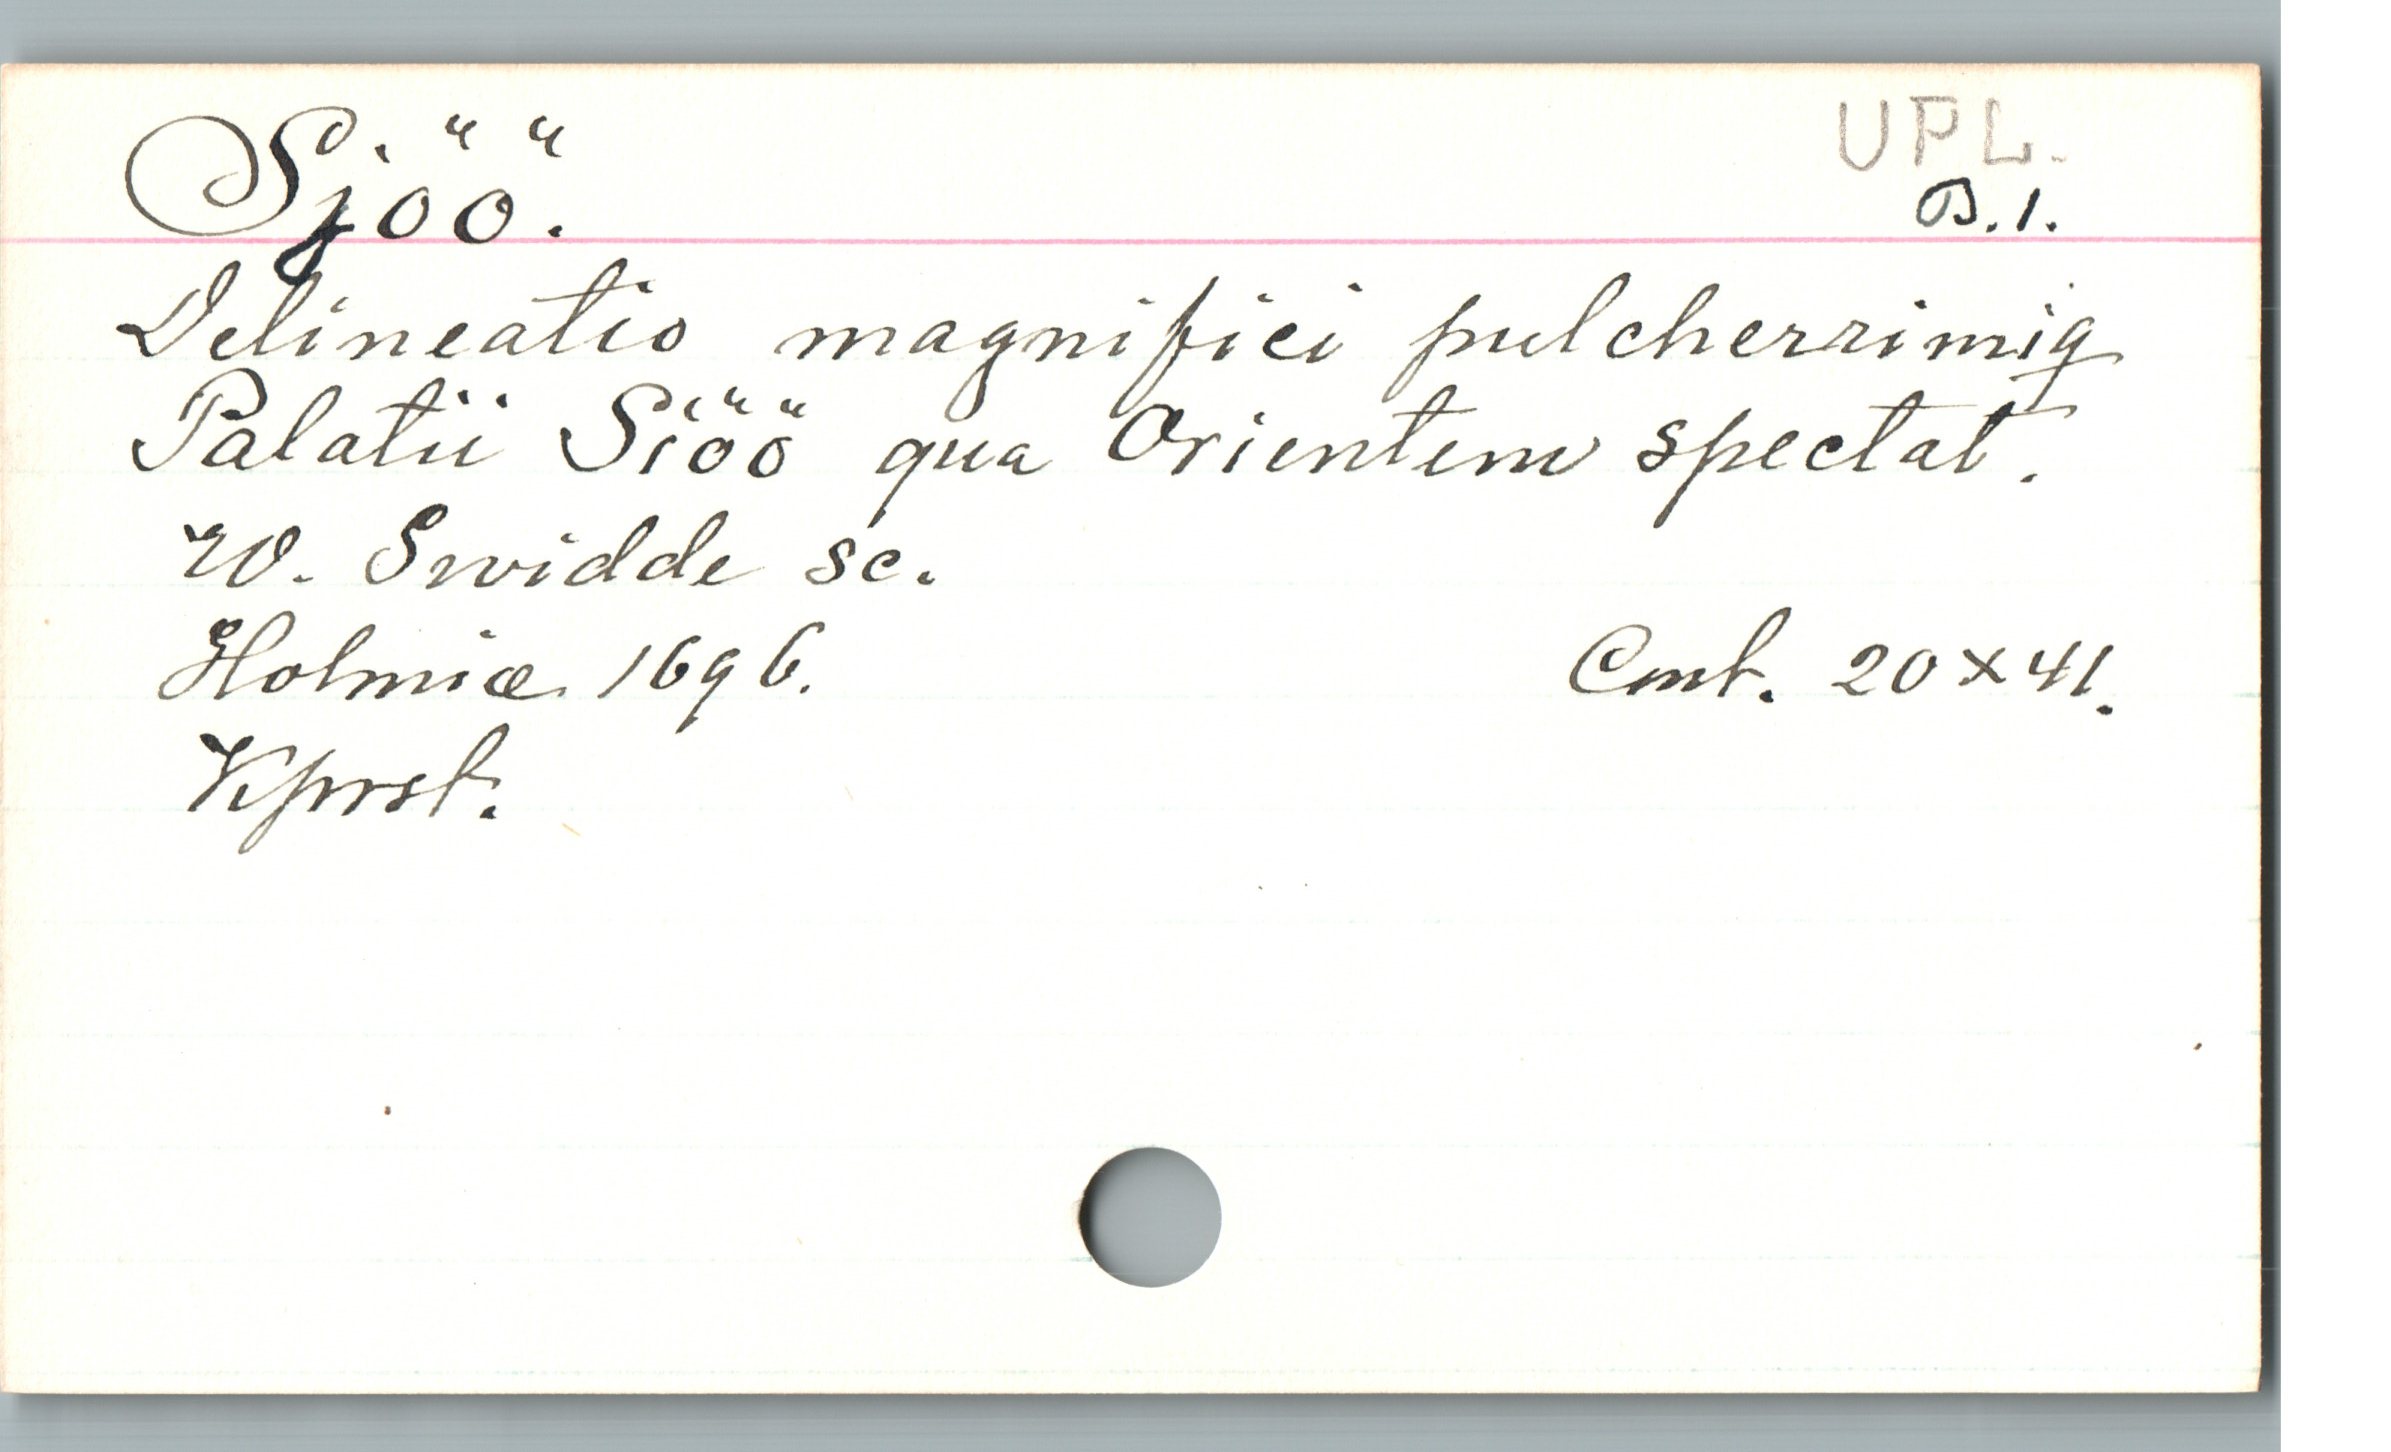 Sjöö.
UPL.
B.1.
Delineatio magnifici pulcherrimiq
Palatii Siöö qua Orientem spectat.
W. Swidde sc.
Holmiæ 1696.
Cmt. 20×41.
Kprst.